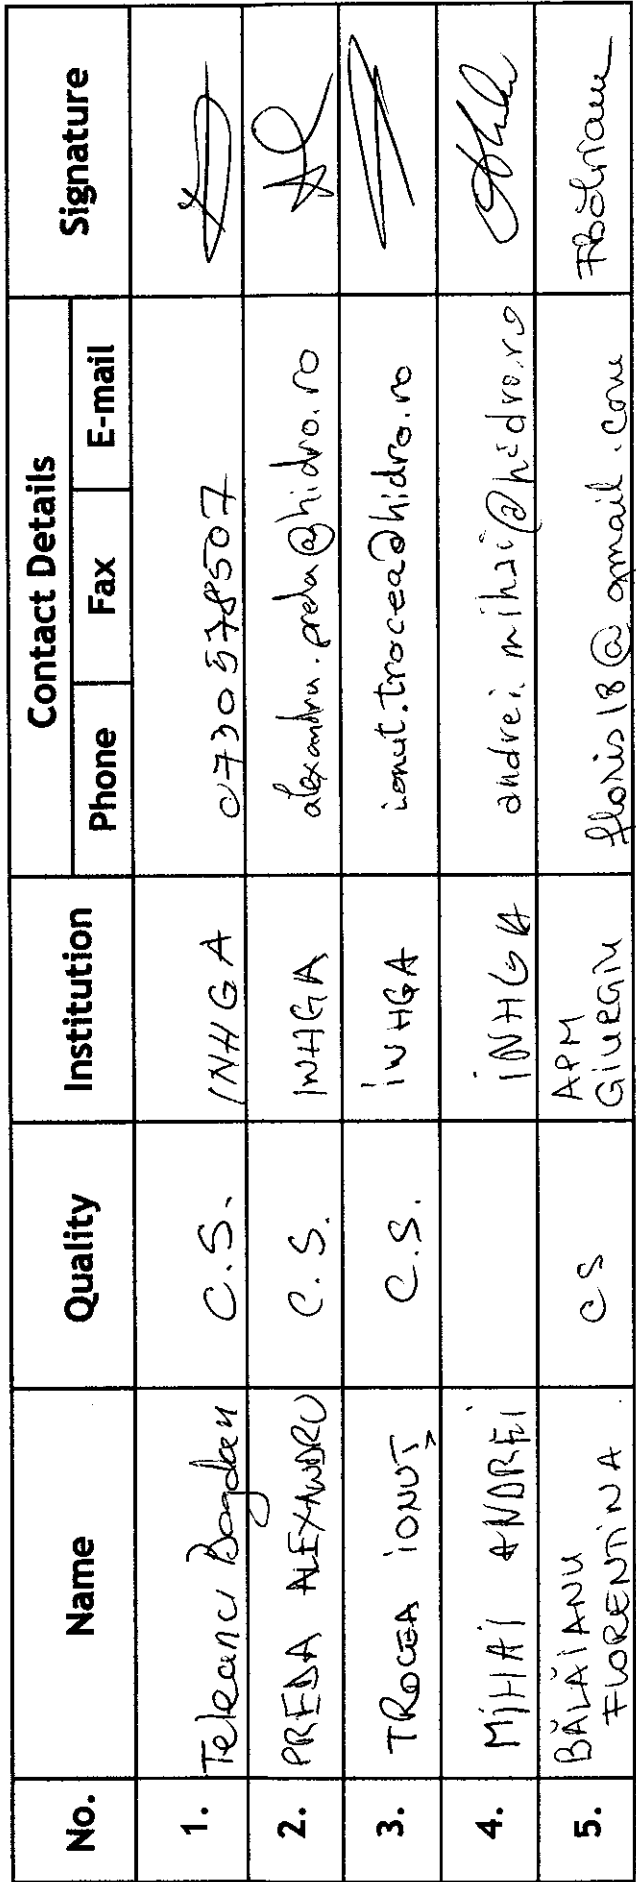 No. Name Quality Institution Contact Details Signature
Phone Fax E-mail
1. Teleanu Bogdan C.S. INHGA 0730578507
2. PREDA ALEXANDRU C.S. INHGA alexandru.preda@hidro.ro
3. TROCEA IONUȚ C.S. INHGA ionut.trocea@hidro.ro
4. MIHAI ANDREI INHGA andrei.mihai@hidro.ro
5. BĂLĂIANU FLORENTINA CS APM GIURGIU floris18@gmail.com